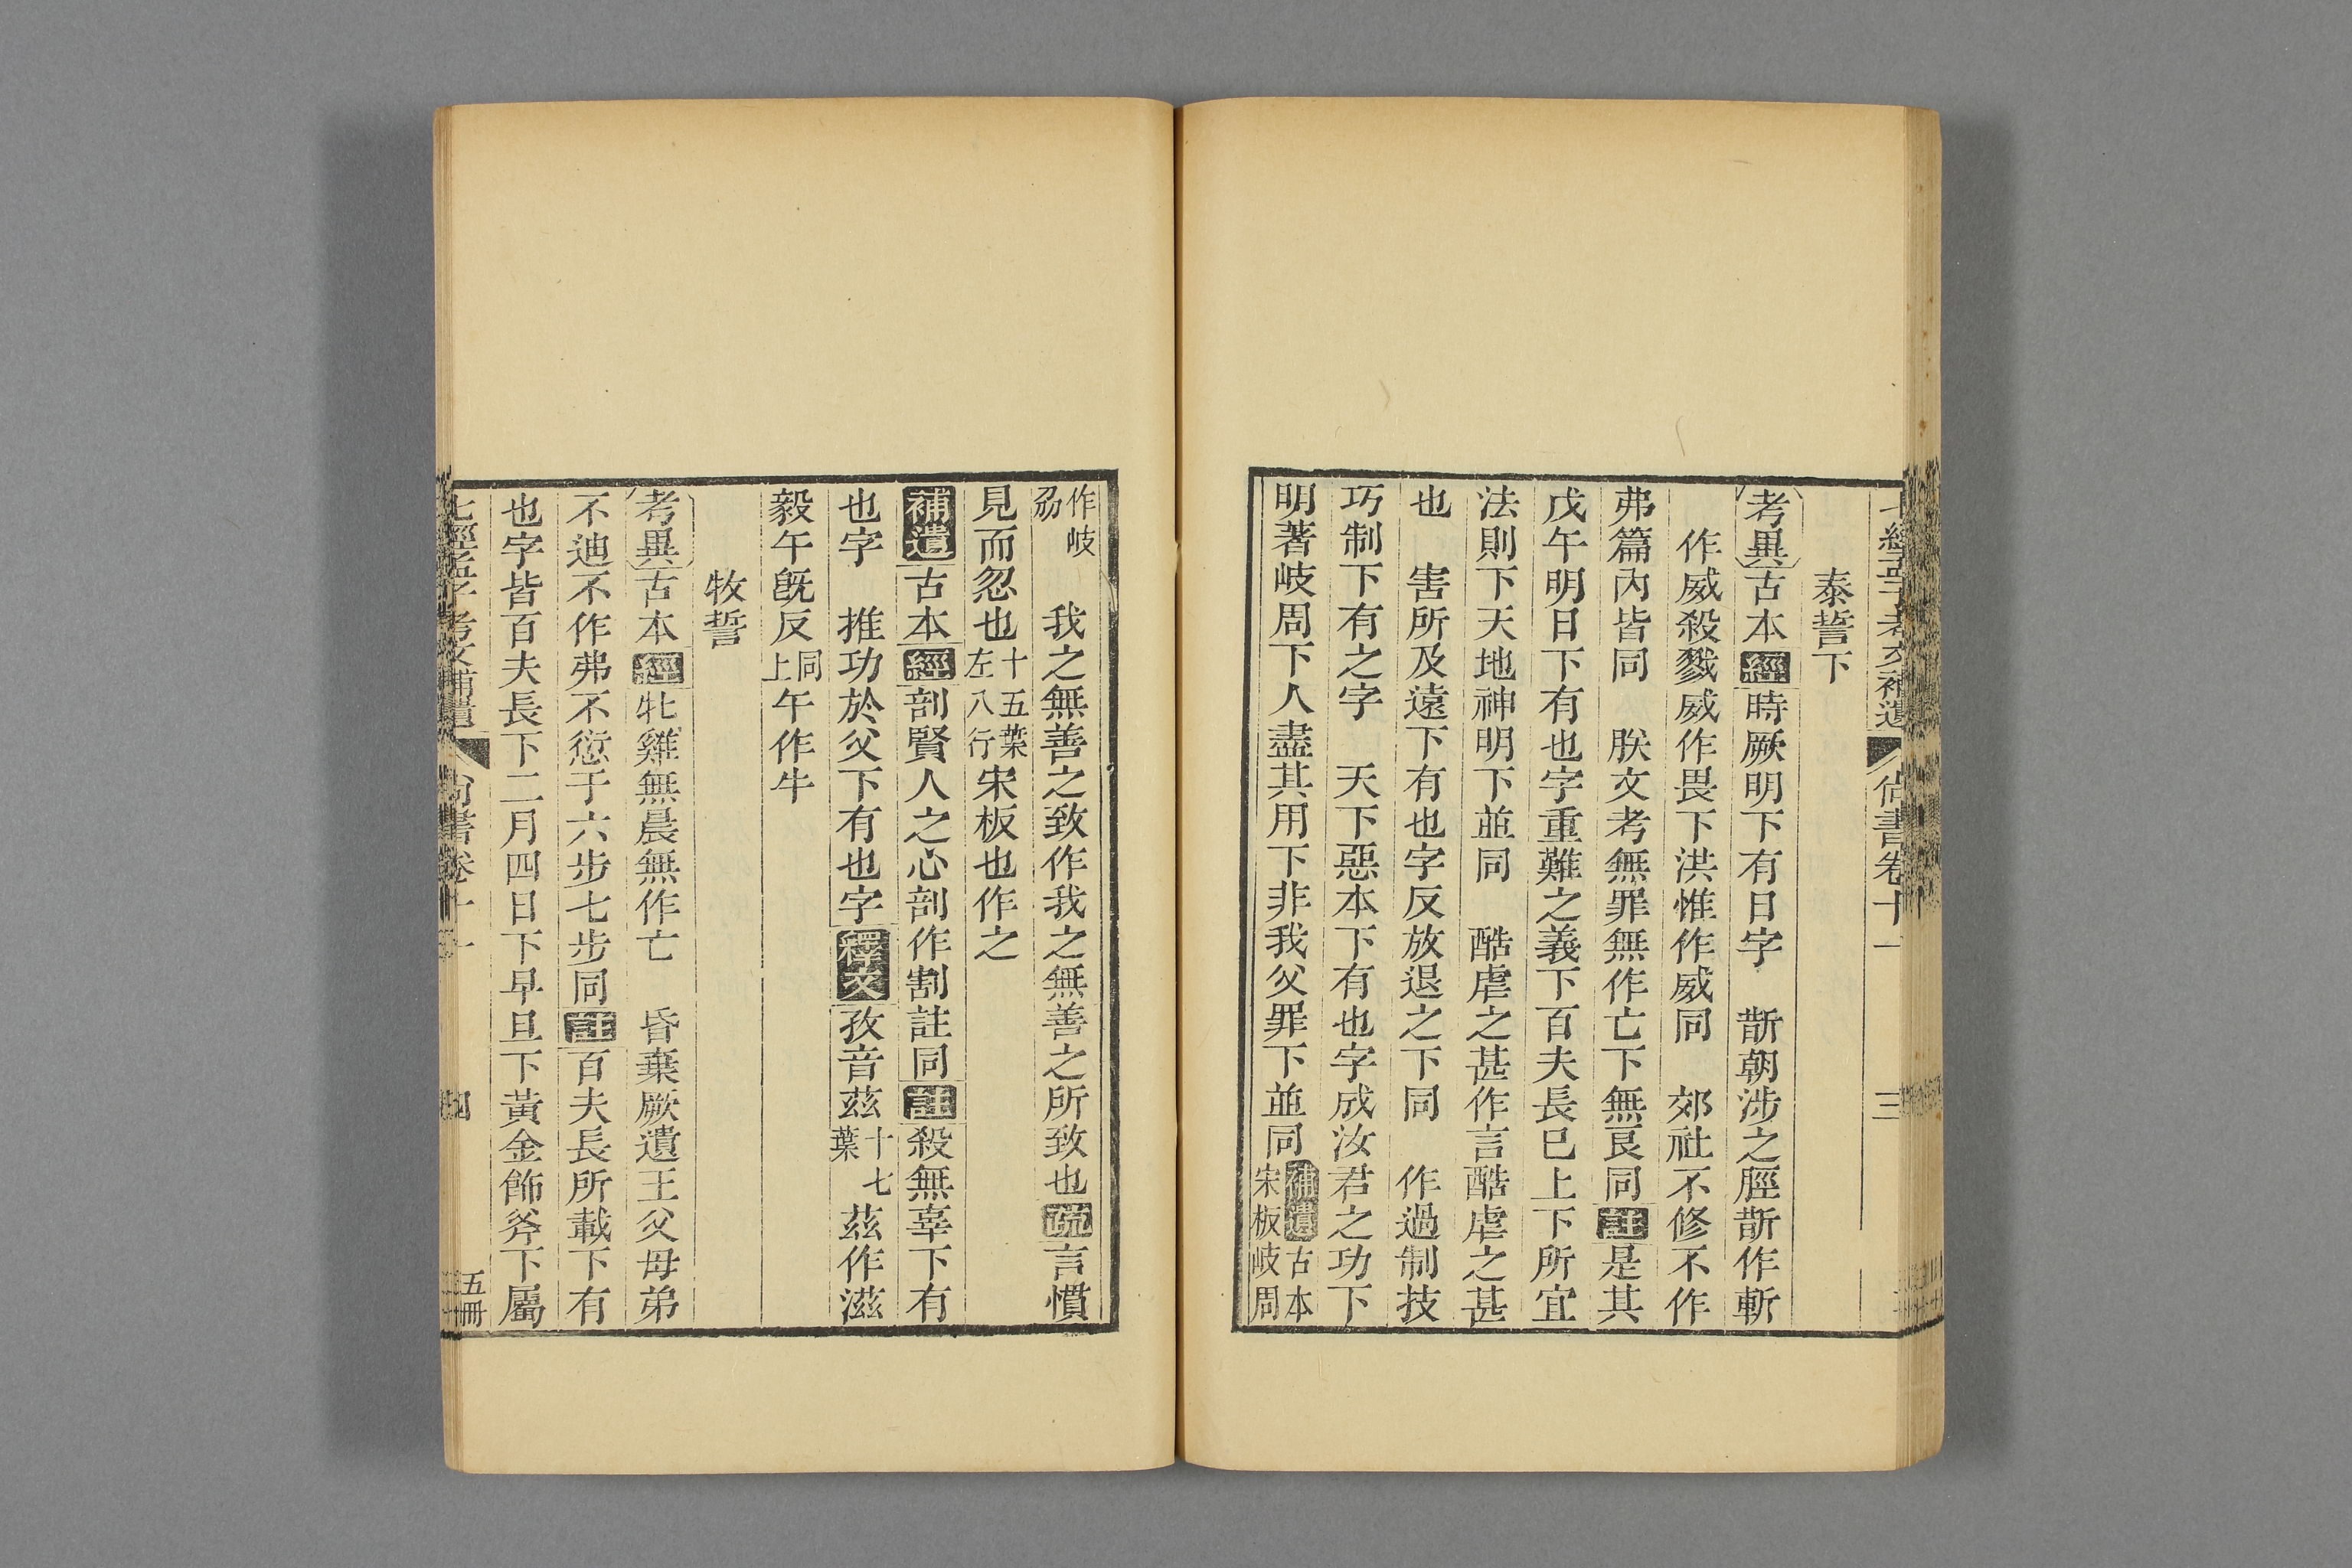 七經孟子考文補遺 尚書卷十一 三
泰誓下
考異古本經時厥明下有日字 斮朝涉之脛斮作斬
作威殺戮威作畏下洪惟作威同 郊社不修不作
弗篇內皆同 朕文考無罪無作亡下無良同註是其
戊午明日下有也字重難之義下百夫長已上下所宜
法則下天地神明下並同 酷虐之甚作言酷虐之甚
也 害所及遠下有也字反放退之下同 作過制技
巧制下有之字 天下惡本下有也字成汝君之功下
明著岐周下人盡其用下非我父罪下並同補遺古本
宋板岐周
作岐
刕 我之無善之致作我之無善之所致也疏言慣
見而忍也十五葉
左八行宋板也作之
補遺古本經剖賢人之心剖作割註同註殺無辜下有
也字 推功於父下有也字釋文孜音茲十七
葉 茲作滋
毅午旣反同
上午作牛
牧誓
考異古本經牝雞無晨無作亡 昏棄厥遺王父母弟
不迪不作弗不愆于六步七步同註百夫長所載下有
也字皆百夫長下二月四日下早旦下黃金飾斧下屬
七經孟子考文補遺 尚書卷十一 四 五冊